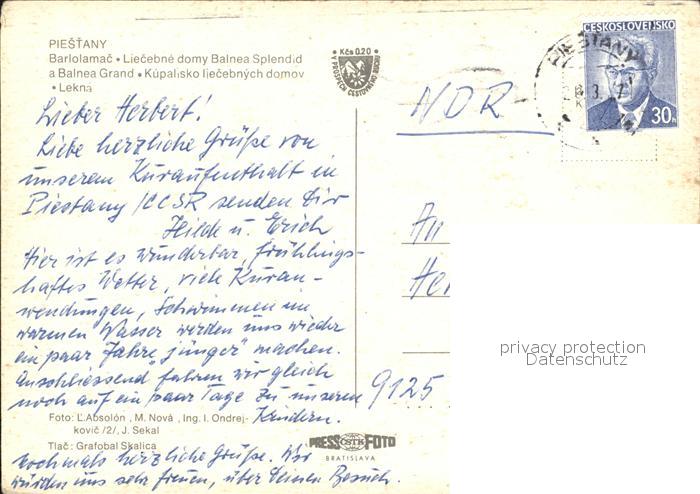 PIEŠŤANY
Barlolamač • Liečebné domy Balnea Splendid
a Balnea Grand • Kúpalisko liečebných domov
• Lekná
Kčs 0.20
V PROSPECH CESTOVNÉHO RUCHU
ČESKOSLOVENSKO
30h
PIEŠŤANY
Lieber Herbert!
Liebe herzliche Grüße von
unserem Kuraufenthalt in
Piestany /CCSR senden Dir
Hilde u. Erich
Hier ist es wunderbar, frühlings-
haftes Wetter, viele Kuran-
wendungen, Schwimmen im
warmen Wasser werden uns wieder
ein paar Jahre "jünger" machen.
Anschliessend fahren wir gleich
noch auf ein paar Tage zu unseren
Kindern.
Foto: Ľ. Absolón, M. Nová, Ing. I. Ondrej-
kovič /2/, J. Sekal
Tlač: Grafobal Skalica
nochmals herzliche Grüße. Wir
würden uns sehr freuen, über Deinen Besuch.
NDR
An
9125
PRESS ČSTK FOTO
BRATISLAVA
privacy protection
Datenschutz